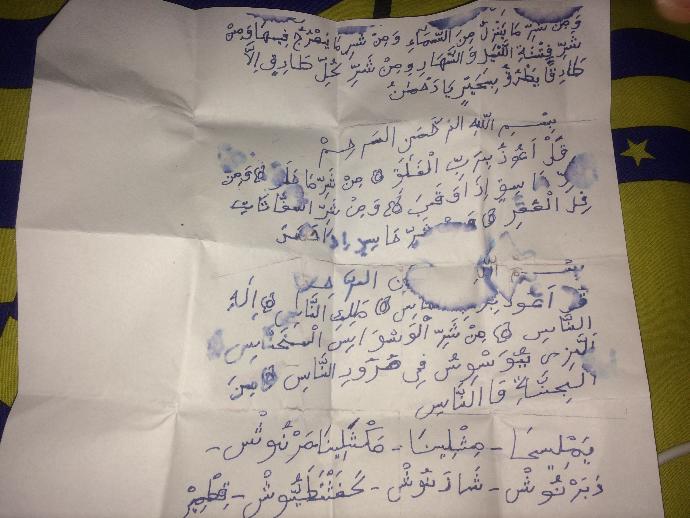 وَمِنْ شَرِّ مَا يَنْزِلُ مِنَ السَّمَاءِ وَمِنْ شَرِّ مَا يَعْرُجُ فِيهَا وَمِنْ
شَرِّ فِتْنَةِ اللَّيْلِ وَالنَّهَارِ وَمِنْ شَرِّ كُلِّ طَارِقٍ اِلَّا
طَارِقًا يَطْرُقُ بِخَيْرٍ يَا رَحْمٰنُ
بِسْمِ اللّٰهِ الرَّحْمٰنِ الرَّحِيْمِ
قُلْ اَعُوْذُ بِرَبِّ الْفَلَقِ مِنْ شَرِّ مَا خَلَقَ وَمِنْ
اِذَا وَقَبَ وَمِنْ شَرِّ النَّفَّاثَاتِ
فِى الْعُقَدِ حَاسِدٍ اِذَا حَسَدَ
بِسْمِ اللّٰهِ
قُلْ اَعُوْذُ النَّاسِ مَلِكِ النَّاسِ اِلٰهِ
النَّاسِ مِنْ شَرِّ الْوَسْوَاسِ الْخَنَّاسِ
الَّذِى يُوَسْوِسُ فِى صُدُوْرِ النَّاسِ مِنَ
الْجِنَّةِ وَالنَّاسِ
يَمْلِيخَا - مِثْلِينَا - مَكْشَلِينَا مَرْنُوشْ -
دَبَرْنُوشْ - شَاذَنُوشْ - كَفَشْطَطَيُّوشْ - قِطْمِيْرْ